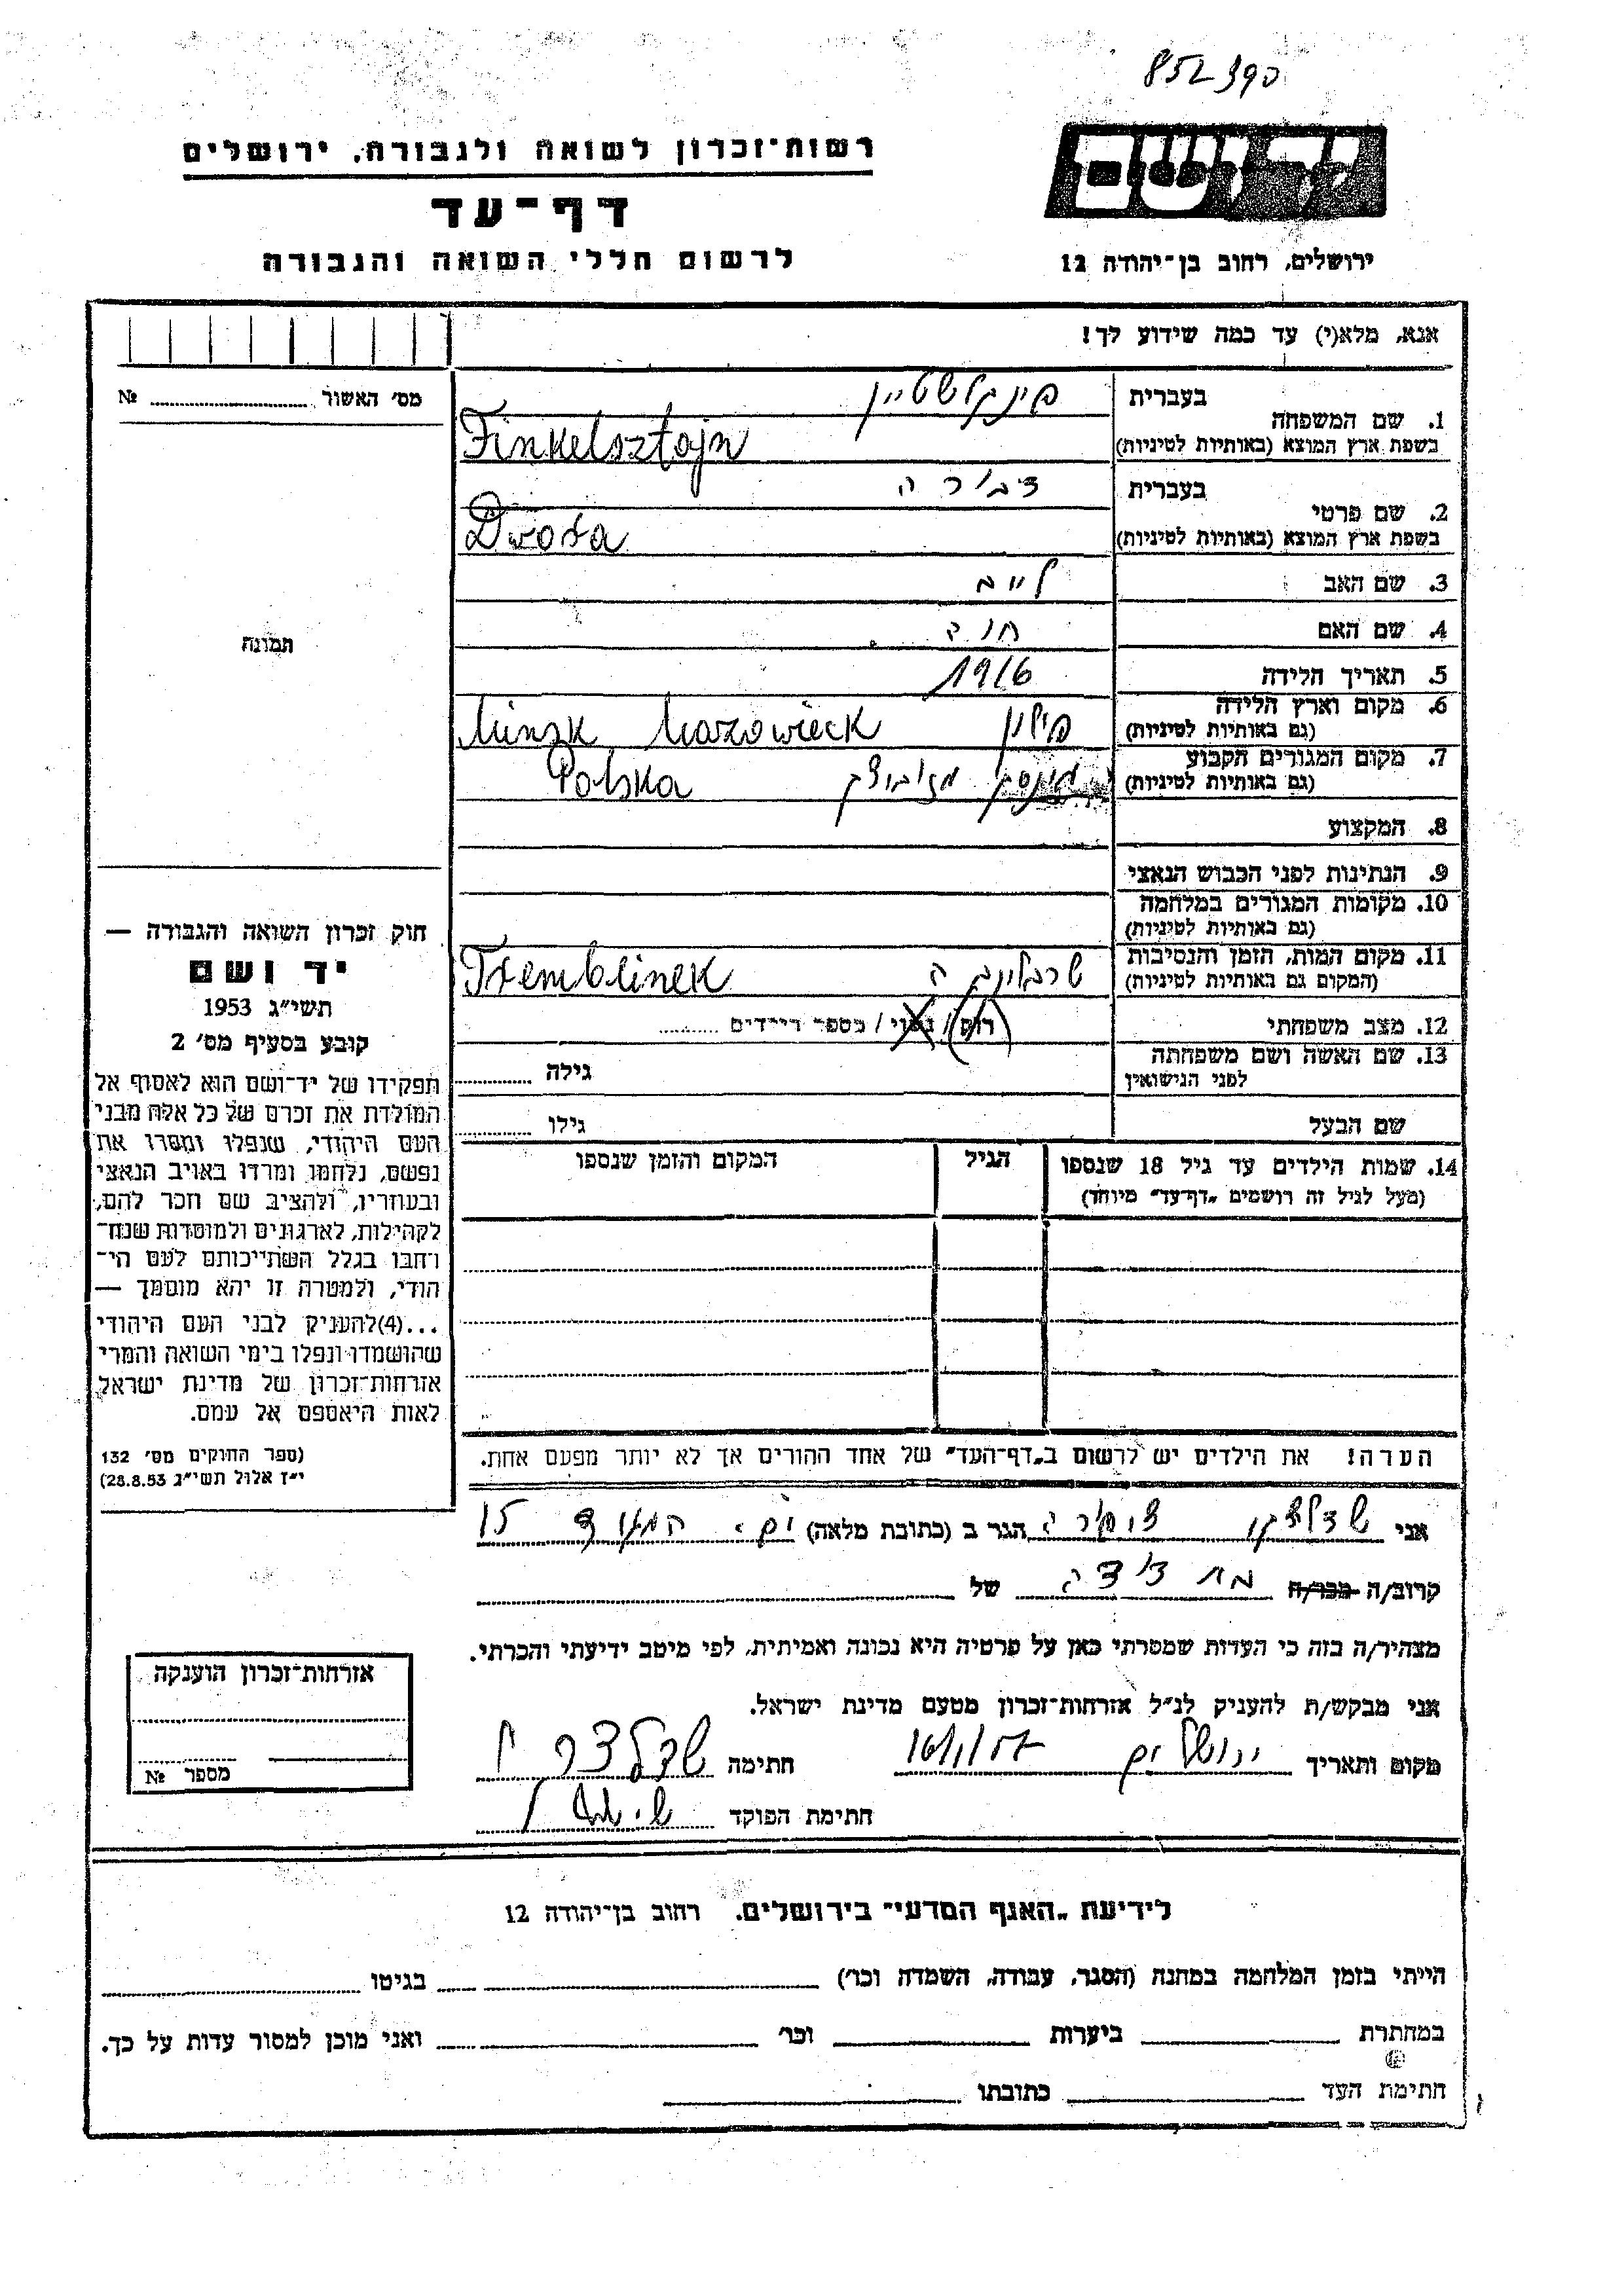 852390
רשות־זכרון לשואה ולגבורה, ירושלים
דף־עד
לרשום חללי השואה והגבורה
יד ושם
ירושלים, רחוב בן־יהודה 12
אנא, מלא(י) עד כמה שידוע לך!
מס׳ האשור № 
בעברית פינקלשטיין
1. שם המשפחה
בשפת ארץ המוצא (באותיות לטיניות) Finkelsztajn
בעברית דבורה
2. שם פרטי
בשפת ארץ המוצא (באותיות לטיניות) Dwora
3. שם האב לייב
4. שם האם חוה
5. תאריך הלידה 1916
6. מקום וארץ הלידה
(גם באותיות לטיניות) פולין Minsk Mazowieck
7. מקום המגורים הקבוע
(גם באותיות לטיניות) מינסק Polska
8. המקצוע
9. הנתינות לפני הכבוש הנאצי
10. מקומות המגורים במלחמה
(גם באותיות לטיניות)
11. מקום המות, הזמן והנסיבות
(המקום גם באותיות לטיניות) טרבלינקה Tremblinek
12. מצב משפחתי רוק / נשוי / מספר הילדים
13. שם האשה ושם משפחתה
לפני הנישואין גילה
שם הבעל גילו
14. שמות הילדים עד גיל 18 שנספו הגיל המקום והזמן שנספו
(מעל לגיל זה רושמים „דף־עד״ מיוחד)
הערה! את הילדים יש לרשום ב„דף־העד״ של אחד ההורים אך לא יותר מפעם אחת.
תמונה
חוק זכרון השואה והגבורה —
יד ושם
תשי״ג 1953
קובע בסעיף מס׳ 2
תפקידו של יד־ושם הוא לאסוף אל
המולדת את זכרם של כל אלה מבני
העם היהודי, שנפלו ומסרו את
נפשם, נלחמו ומרדו באויב הנאצי
ובעוזריו, ולהציב שם וזכר להם,
לקהילות, לארגונים ולמוסדות שנח־
רבו בגלל השתייכותם לעם הי־
הודי, ולמטרה זו יהא מוסמך —
...(4)להעניק לבני העם היהודי
שהושמדו ונפלו בימי השואה והמרי
אזרחות־זכרון של מדינת ישראל,
לאות היאספם אל עמם.
(ספר החוקים מס׳ 132
י״ז אלול תשי״ג 28.8.53)
אני הגר ב (כתובת מלאה) 15
קרוב/ה מכר/ה בת דודה של
מצהיר/ה בזה כי העדות שמסרתי כאן על פרטיה היא נכונה ואמיתית, לפי מיטב ידיעתי והכרתי.
אני מבקש/ת להעניק לנ״ל אזרחות־זכרון מטעם מדינת ישראל.
מקום ותאריך ירושלים חתימה
חתימת הפוקד
אזרחות־זכרון הוענקה
מספר №
לידיעת „האגף המדעי״ בירושלים, רחוב בן־יהודה 12
הייתי בזמן המלחמה במחנה (הסגר, עבודה, השמדה וכו׳) בגיטו
במחתרת ביערות וכו׳ ואני מוכן למסור עדות על כך.
חתימת העד כתובתו